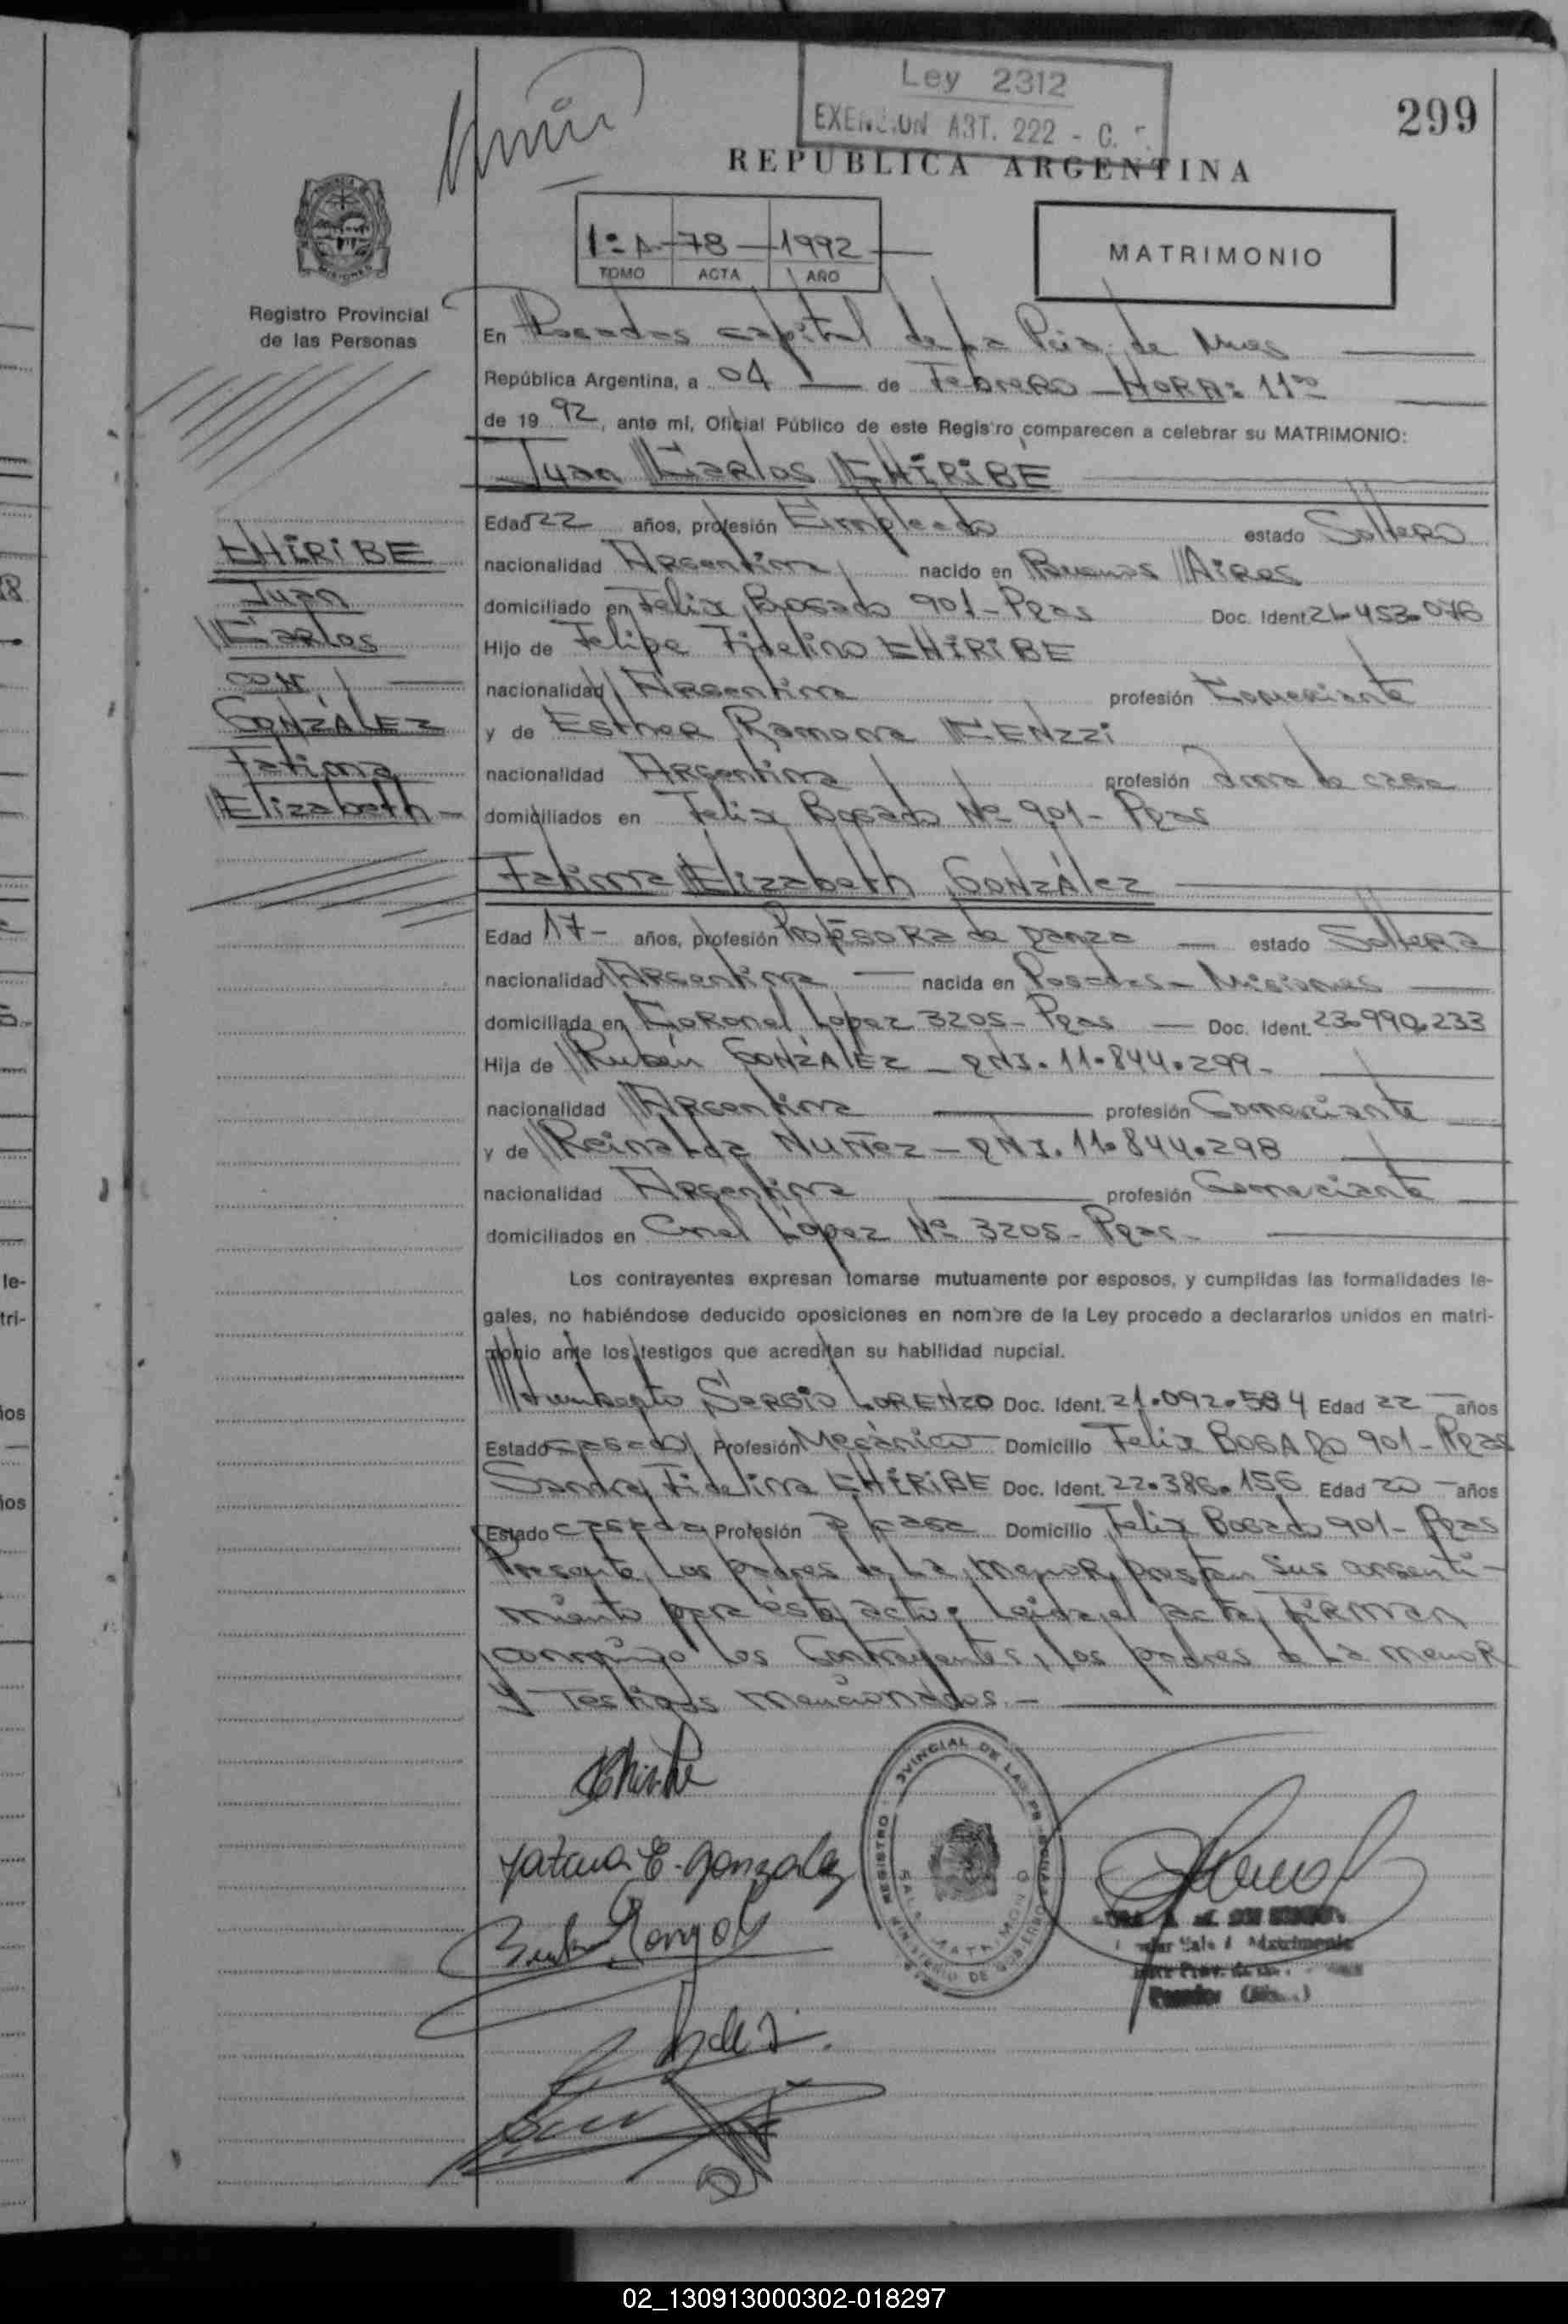 Ley 2312
EXENCION ART. 222 - C.
299
REPUBLICA ARGENTINA
1º A - 78 - 1992
TOMO ACTA AÑO
MATRIMONIO
Registro Provincial
de las Personas
En Posadas capital de la Pcia. de Mnes
República Argentina, a 04 de Febrero - HORA: 11
de 19 92, ante mí, Oficial Público de este Registro comparecen a celebrar su MATRIMONIO:
Juan Carlos CHIRIBE
CHIRIBE
Juan
Carlos
con
GONZÁLEZ
Fatima
Elizabeth -
Edad 22 años, profesión Empleado estado Soltero
nacionalidad Argentina nacido en Buenos Aires
domiciliado en Felix Bogado 901 - Pdas Doc. Ident. 21.453.076
Hijo de Felipe Fidelino CHIRIBE
nacionalidad Argentina profesión Comerciante
y de Esther Ramona
nacionalidad Argentina profesión ama de casa
domiciliados en Felix Bogado Nº 901 - Pdas
Fatima Elizabeth GONZÁLEZ
Edad 17 - años, profesión Profesora de Danza estado Soltera
nacionalidad Argentina nacida en Posadas - Misiones
domiciliada en Coronel Lopez 3205 - Pdas Doc. Ident. 23.990.233
Hija de Rubén GONZÁLEZ - DNI. 11.844.299 -
nacionalidad Argentina profesión Comerciante
y de Reinalda NUÑEZ - DNI. 11.844.298
nacionalidad Argentina profesión Comerciante
domiciliados en Cnel López Nº 3205 - Pdas -
Los contrayentes expresan tomarse mutuamente por esposos, y cumplidas las formalidades le-
gales, no habiéndose deducido oposiciones en nombre de la Ley procedo a declararlos unidos en matri-
monio ante los testigos que acreditan su habilidad nupcial.
Humberto Sergio LORENZO Doc. Ident. 21.092.584 Edad 22 años
Estado casado Profesión Mecánico Domicilio Felix BOGADO 901 - Pdas
Sandra Fidelina CHIRIBE Doc. Ident. 22.386.156 Edad 20 años
Estado casada Profesión casa Domicilio Felix Bogado 901 - Pdas
Presente los padres de la menor, prestan sus consenti-
miento para éste acto. Leida el acta, FIRMAN
conmigo los Contrayentes, los padres de la menor
y Testigos mencionados. -
Chiribe
Fatima E. Gonzalez
REGISTRO PROVINCIAL DE LAS PERSONAS
MINISTERIO DE GOBIERNO
SALA MATRIMONIO
02_130913000302-018297